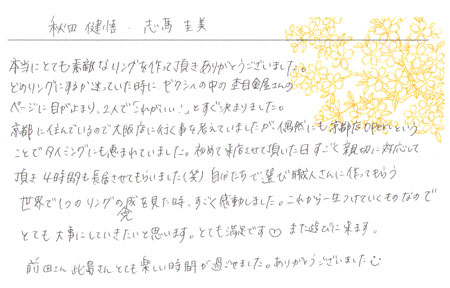 秋田 健悟 . 志馬 圭美
本当にとても素敵なリングを作って頂きありがとうございました。
どのリングにするか迷っていた時にゼクシィの中の杢目金屋さんの
ページに目がとまり、2人で「これがいい!」とすぐ決まりました。
京都に住んでいるので大阪店に行く事を考えていましたが偶然にも京都店openという
ことでタイミングにも恵まれていました。初めて来店させて頂いた日すごく親切に対応して
頂き4時間も長居させてもらいました(笑)自分たちで選び職人さんに作ってもらう
世界で1つのリングの完成を見た時、すごく感動しました。これから一生つけていくものなので
とても大事にしていきたいと思います。とても満足です♡ また遊びに来ます。
前田さん 此島さんとても楽しい時間が過ごせました。ありがとうございました